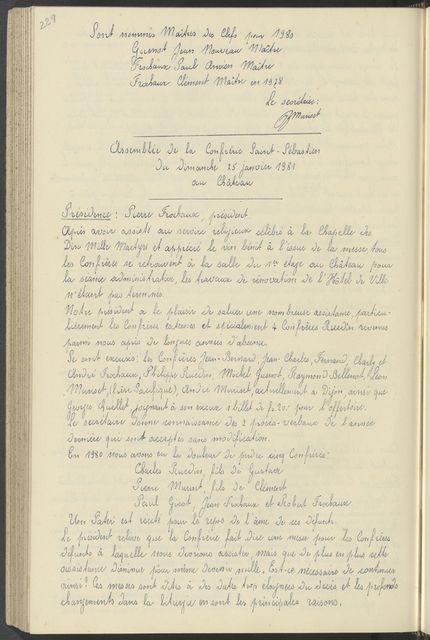 229
Sont nommés Maîtres des Clefs pour 1980
Guenot Jean Nouveau Maître
Frochaux Paul Ancien Maître
Frochaux Clément Maître en 1978
Le secrétaire:
JMuriset
Assemblée de la Confrérie Saint-Sébastien
Du Dimanche 25 janvier 1981
au Château
Présidence: Pierre Frochaux, président
Après avoir assisté au service religieux célébré à la Chapelle des
Dix Mille Martyrs et apprécié le vin bénit à l'issue de la messe, tous
les Confrères se retrouvent à la salle du 1er étage au Château pour
la séance administrative, les travaux de rénovation de l'Hôtel de Ville
n'étant pas terminés.
Notre président a le plaisir de saluer une nombreuse assistance, particu-
lièrement les Confrères externes et spécialement 4 Confrères Ruedin revenus
parmi nous après de longues années d'absence.
Se sont excusés: les Confrères Jean-Bernard, Jean Charles, Fernand, Charles et
André Frochaux, Philippe Ruedin, Michel Guenot, Raymond Bellenot, Léon
Muriset, (Père Pacifique), André Muriset, actuellement à Dijon, ainsi que
Georges Quellet joignant à son excuse 1 billet de fr. 20.- pour l'offertoire.
Le secrétaire donne connaissance des 2 procès-verbaux de l'année
dernière qui sont acceptés sans modification.
En 1980 nous avons eu la douleur de perdre cinq Confrères:
Charles Ruedin, fils de Gustave
Pierre Muriset, fils de Clément
Paul Gicot, Jean Frochaux et Robert Frochaux.
Un Pater est récité pour le repos de l'âme de ces défunts.
Le président relève que la Confrérie fait dire une messe pour les Confrères
défunts à laquelle nous devrions assister, mais que de plus en plus cette
assistance diminue pour même devenir nulle. Est-ce nécessaire de continuer
ainsi? Ces messes sont dites à des dates trop éloignées du décès et les profonds
changements dans la liturgie en sont les principales raisons.